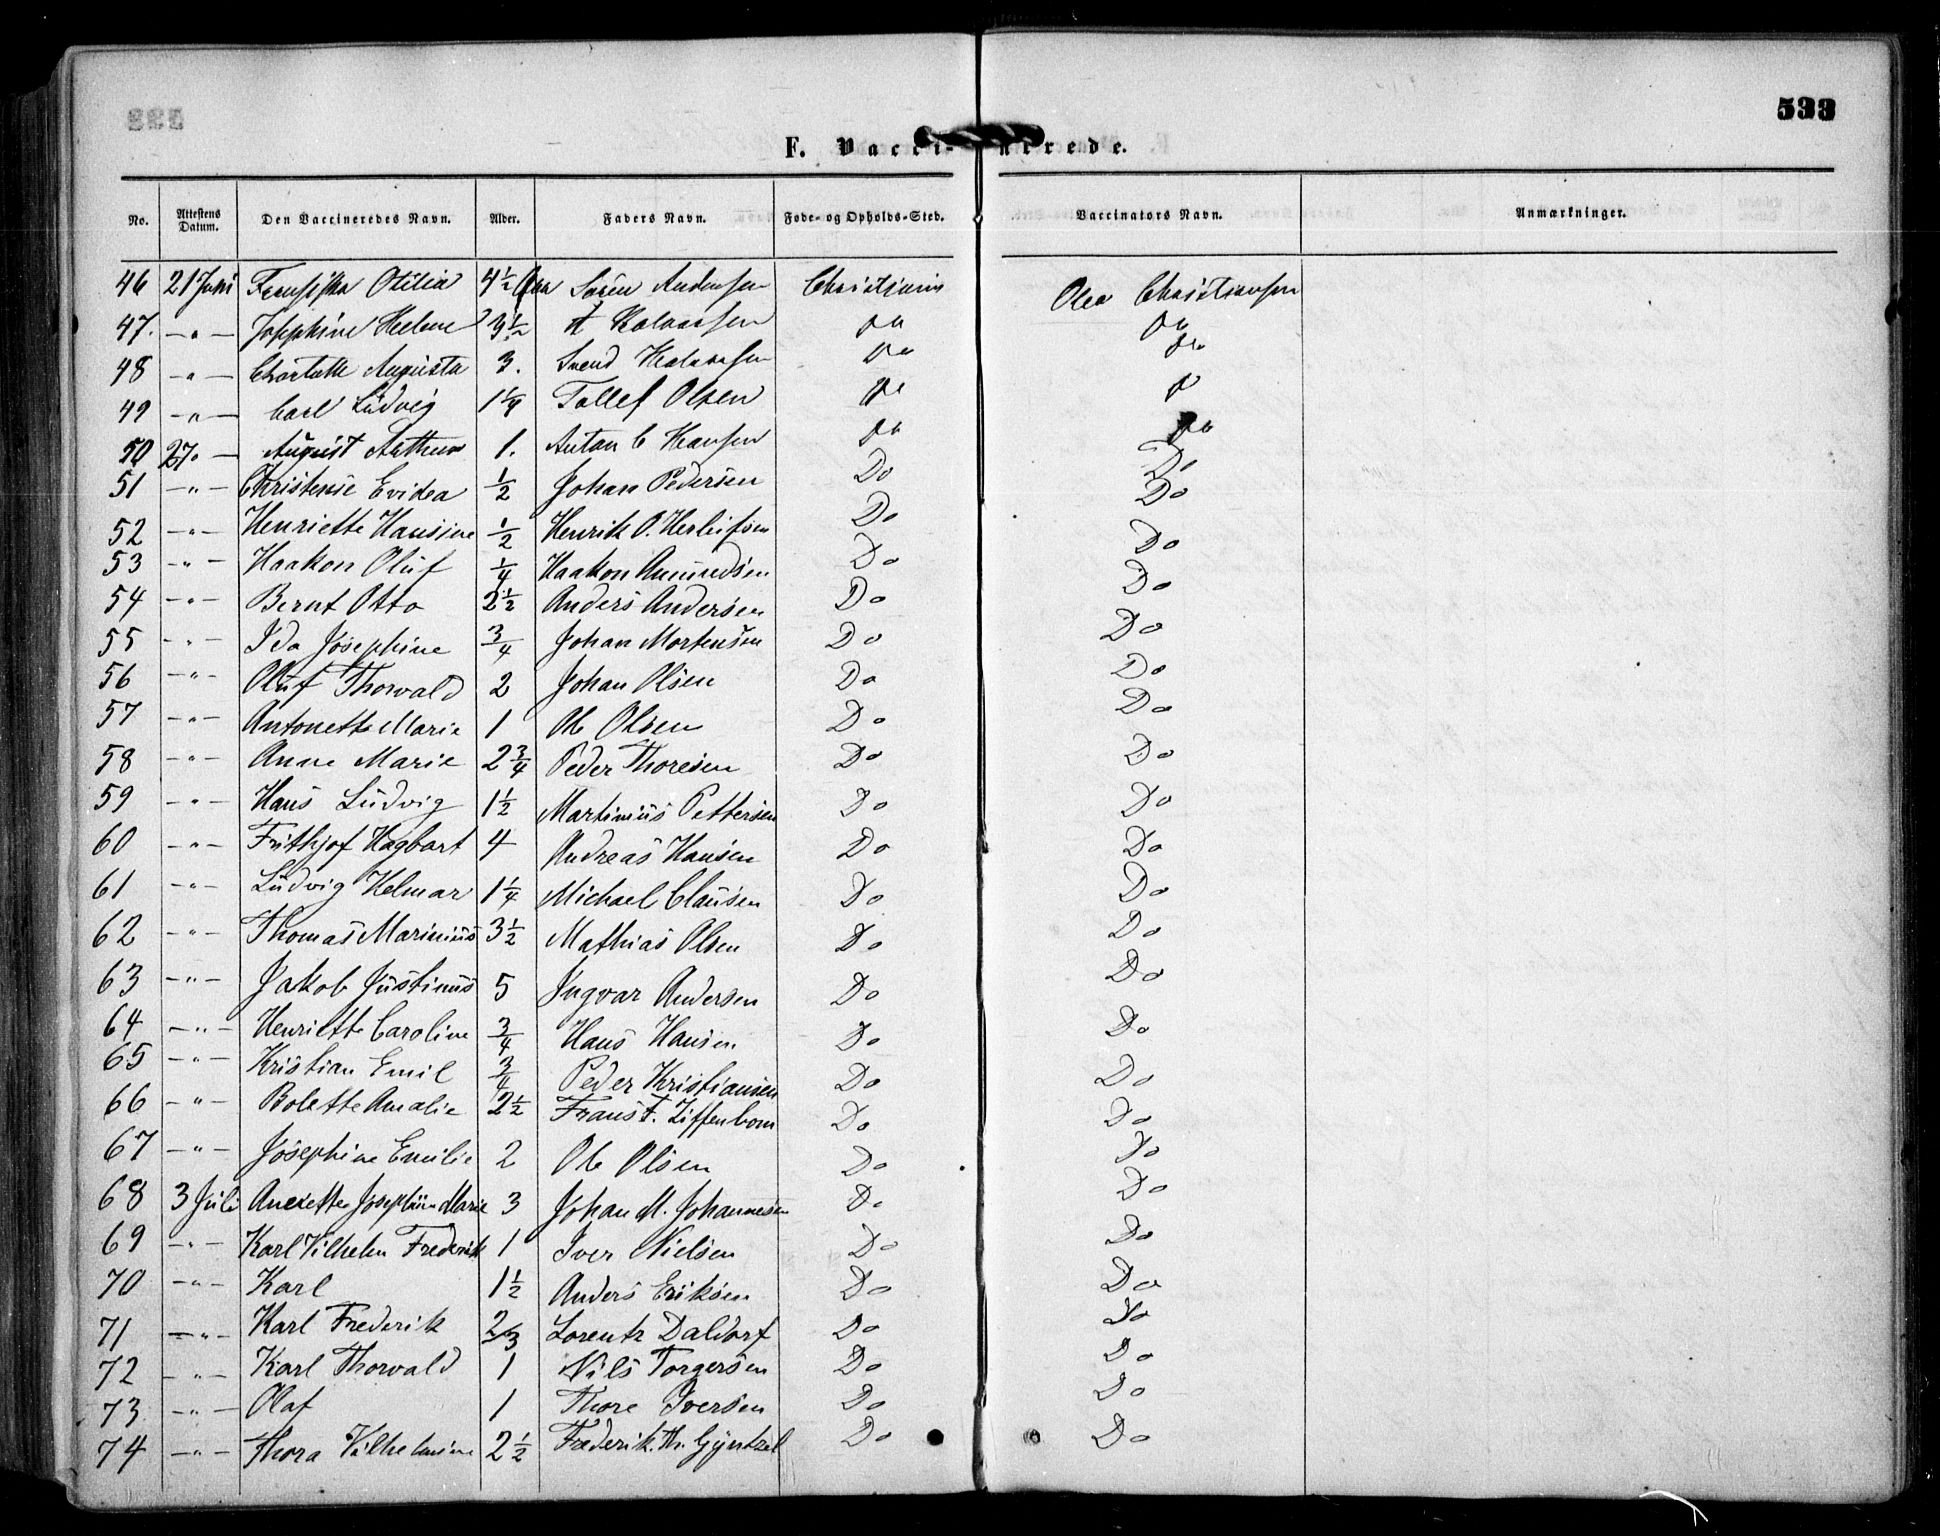 533
F. Vacci- nerede.
No. Attestens Datum. Den Vaccineredes Navn. Alder. Faders Navn. Føde- og Opholds-Sted. Vaccinators Navn. Anmærkninger.
46 21 Juni Otilia 4 1/2 Søren Andersen Christiania Olea Christiansen
47. -"- Josephine Helene 3 1/2 A Do Do
48 -"- Charlotte Augusta 3. Svend Do Do
49 -"- Carl Ludvig 1 1/4 Tollef Olsen Do Do
50 27 - August Arthur 1. Anton C Hansen Do Do
51 -"- Christense Evidea 1/2 Johan Pedersen Do Do
52 -"- Henriette Hansine 1/2 Henrik O. Herleifsen Do Do
53 -"- Haakon Oluf 1/4 Haakon Amundsen Do Do
54 -"- Bernt Otto 2 1/2 Anders Andersen Do Do
55 -"- Ida Josephine 3/4 Johan Mortensen Do Do
56 -"- Oluf Thorvald 2 Johan Olsen Do Do
57 -"- Antonette Marie 1 Ole Olsen Do Do
58 -"- Anne Marie 2 3/4 Peder Thoresen Do Do
59 -"- Hans Ludvig 1 1/2 Martinius Pettersen Do Do
60 -"- Frithjof Hagbart 4 Andreas Hansen Do Do
61 -"- Ludvig Helmar 1 1/4 Michael Clausen Do Do
62 -"- Thomas Marinius 3 1/2 Mathias Olsen Do Do
63 -"- Jakob Justinus 5 Ingvar Andersen Do Do
64 -"- Henriette Caroline 3/4 Hans Hansen Do Do
65 -"- Kristian Emil 3/4 Peder Kristiansen Do Do
66 -"- Bolette Amalie 2 1/2 Frans F. Do Do
67 -"- Josephine Emilie 2 Ole Olsen Do Do
68 3 Juli Anexette Josephine Marie 3 Johan M. Johannesen Do Do
69 -"- Karl Vilhelm Frederik 1 Iver Nielsen Do Do
70 -"- Karl 1 1/2 Anders Eriksen Do Do
71 -"- Karl Frederik 2/3 Lorentz Daldorf Do Do
72 -"- Karl Thorvald 1 Nils Torgersen Do Do
73 -"- Olaf 1 Thore Iversen Do Do
74 -"- Thora Vilhelmine 2 1/2 Frederik. Th. Gyntzel Do Do